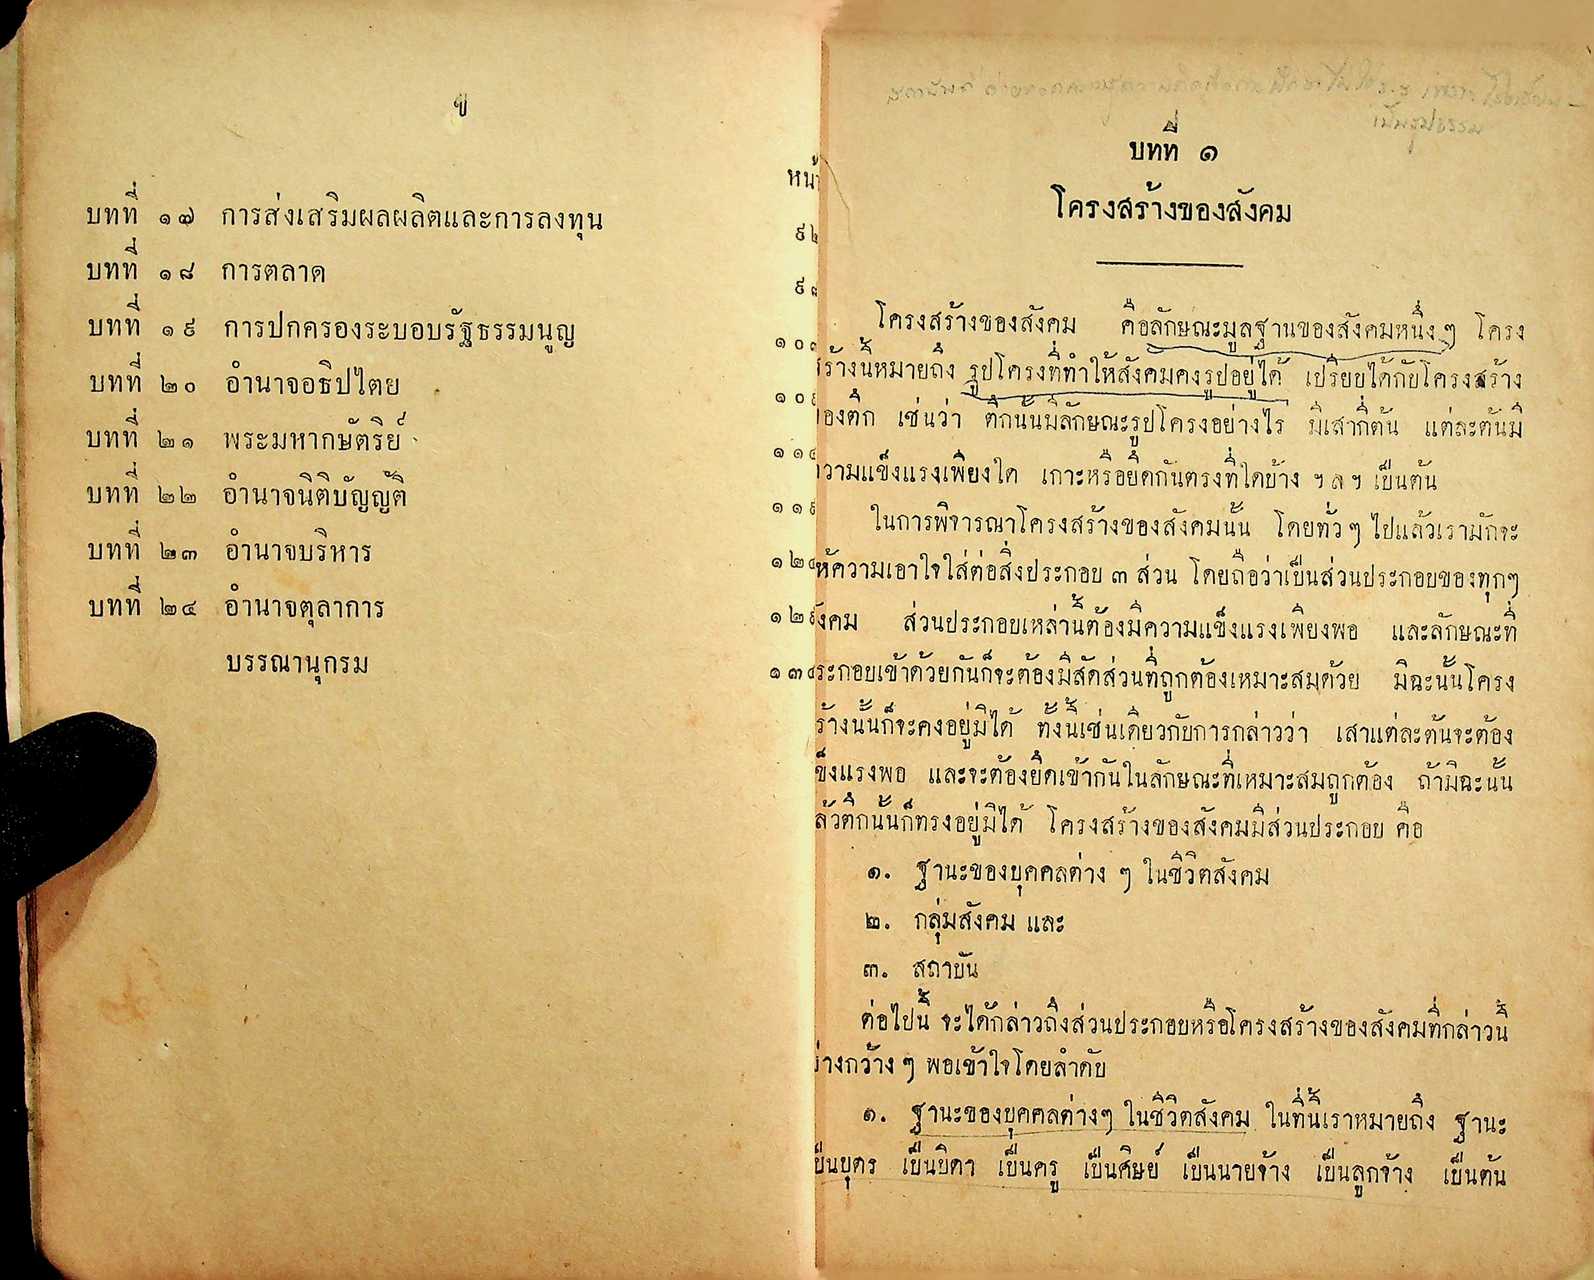 ข
หน้า
บทที่ ๑๗ การส่งเสริมผลผลิตและการลงทุน
บทที่ ๑๘ การตลาด
บทที่ ๑๙ การปกครองระบอบรัฐธรรมนูญ
บทที่ ๒๐ อำนาจอธิปไตย
บทที่ ๒๑ พระมหากษัตริย์
บทที่ ๒๒ อำนาจนิติบัญญัติ
บทที่ ๒๓ อำนาจบริหาร
บทที่ ๒๔ อำนาจตุลาการ
บรรณานุกรม
เป็นรูปธรรม
บทที่ ๑
โครงสร้างของสังคม
โครงสร้างของสังคม คือลักษณะมูลฐานของสังคมหนึ่ง ๆ โครง
สร้างนี้หมายถึง รูปโครงที่ทำให้สังคมคงรูปอยู่ได้ เปรียบได้กับโครงสร้าง
ของตึก เช่นว่า ตึกนั้นมีลักษณะรูปโครงอย่างไร มีเสากี่ต้น แต่ละต้นมี
ความแข็งแรงเพียงใด เกาะหรือยึดกันตรงที่ใดบ้าง ฯ ล ฯ เป็นต้น
ในการพิจารณาโครงสร้างของสังคมนั้น โดยทั่ว ๆ ไปแล้วเรามักจะ
ให้ความเอาใจใส่ต่อสิ่งประกอบ ๓ ส่วน โดยถือว่าเป็นส่วนประกอบของทุกๆ
สังคม ส่วนประกอบเหล่านี้ต้องมีความแข็งแรงเพียงพอ และลักษณะที่
ประกอบเข้าด้วยกันก็จะต้องมีสัดส่วนที่ถูกต้องเหมาะสมด้วย มิฉะนั้นโครง
สร้างนั้นก็จะคงอยู่มิได้ ทั้งนี้เช่นเดียวกับการกล่าวว่า เสาแต่ละต้นจะต้อง
แข็งแรงพอ และจะต้องยึดเข้ากันในลักษณะที่เหมาะสมถูกต้อง ถ้ามิฉะนั้น
แล้วตึกนั้นก็ทรงอยู่มิได้ โครงสร้างของสังคมมีส่วนประกอบ คือ
๑. ฐานะของบุคคลต่าง ๆ ในชีวิตสังคม
๒. กลุ่มสังคม และ
๓. สถาบัน
ต่อไปนี้ จะได้กล่าวถึงส่วนประกอบหรือโครงสร้างของสังคมที่กล่าวนี้
อย่างกว้าง ๆ พอเข้าใจโดยลำดับ
๑. ฐานะของบุคคลต่างๆ ในชีวิตสังคม ในที่นี้เราหมายถึง ฐานะ
เป็นบุตร เป็นบิดา เป็นครู เป็นศิษย์ เป็นนายจ้าง เป็นลูกจ้าง เป็นต้น